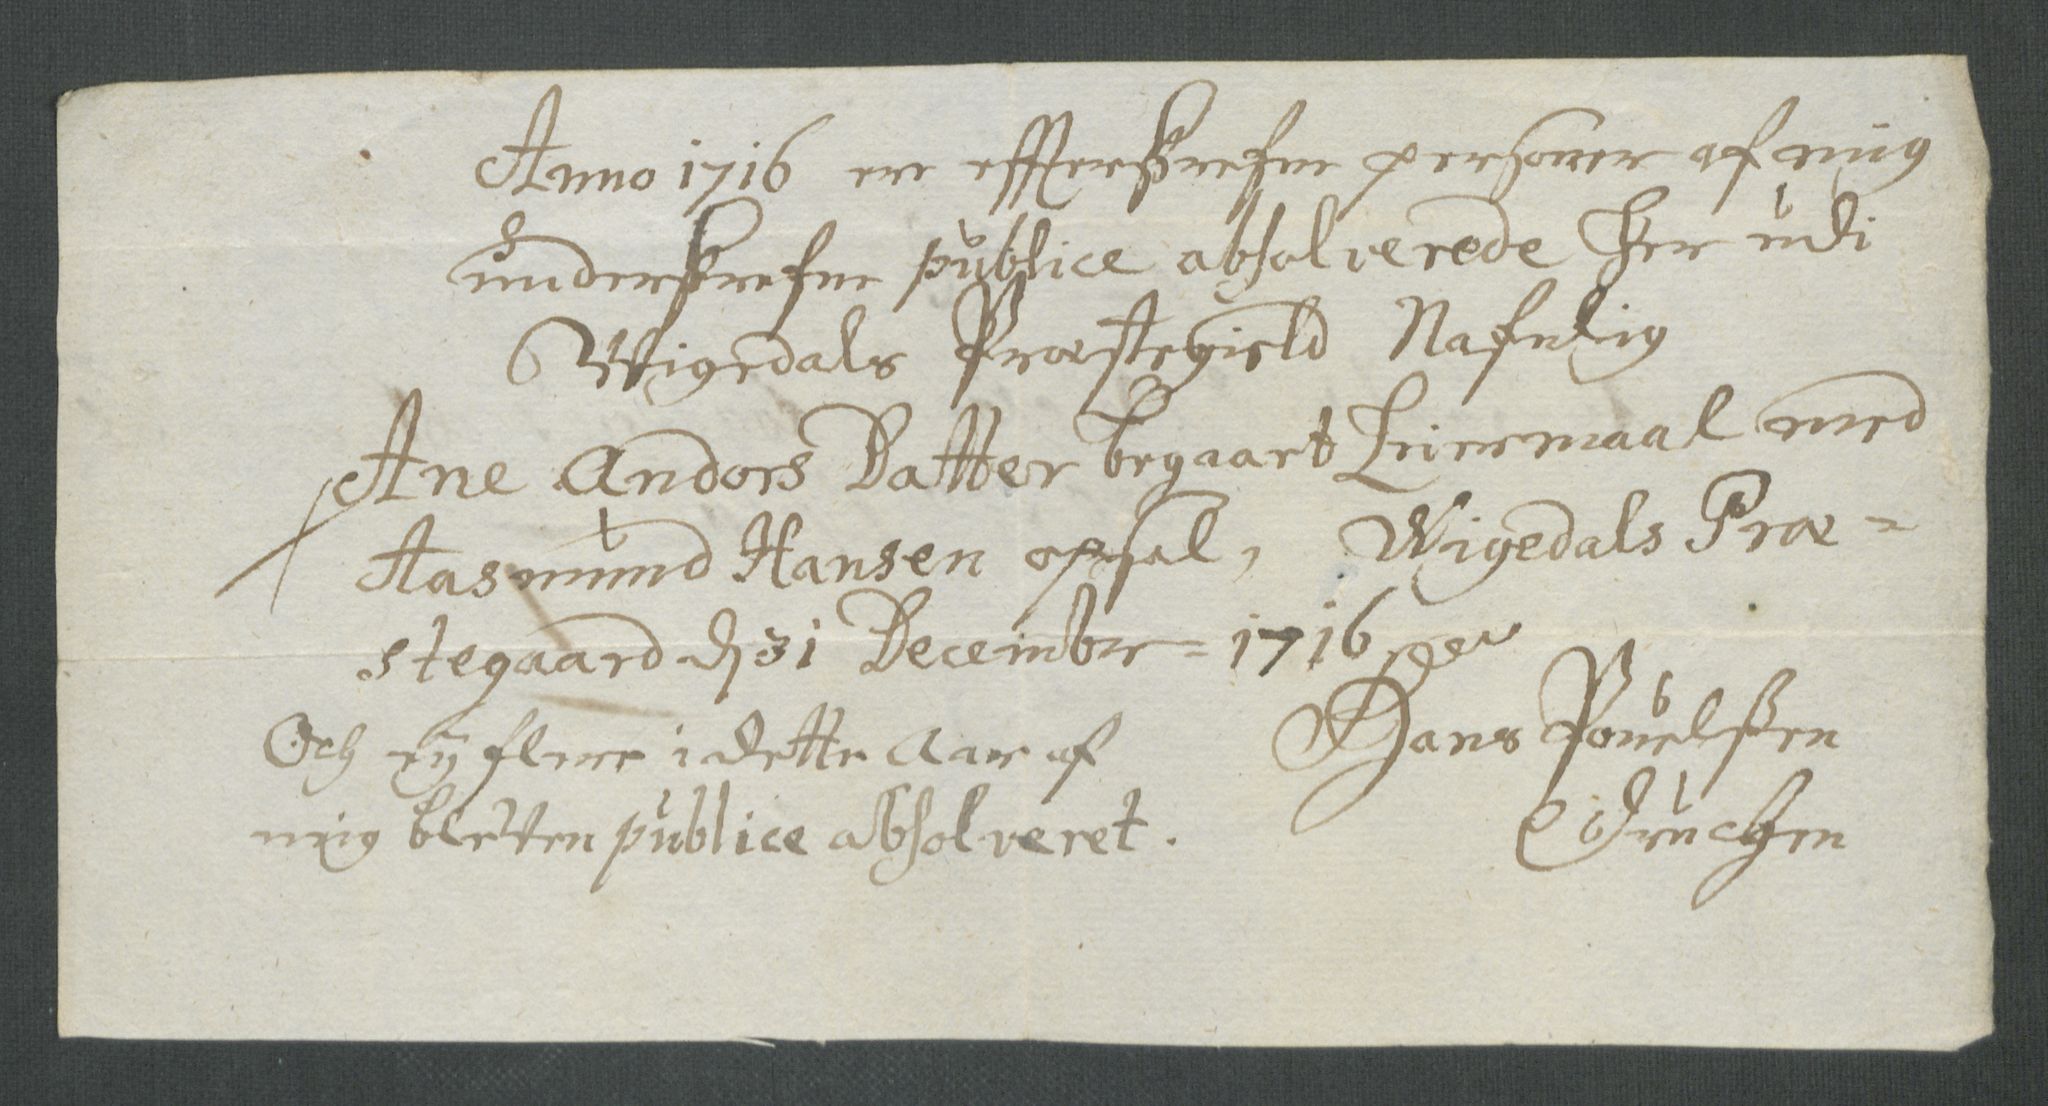 Anno 1716 ere effterskrefne personer af mig
underskrefne publice absolverede her udi
Wigedals Præstegield Nafnlig
Ane Andors Datter begaaet Leiermaal med
Aasmund Hansen opsal, Wigedals Præ=
stegaard d 31 December = 1716
Hans Pouelssen
Och eÿ flere i dette Aar af
mig bleven publice absolveret.